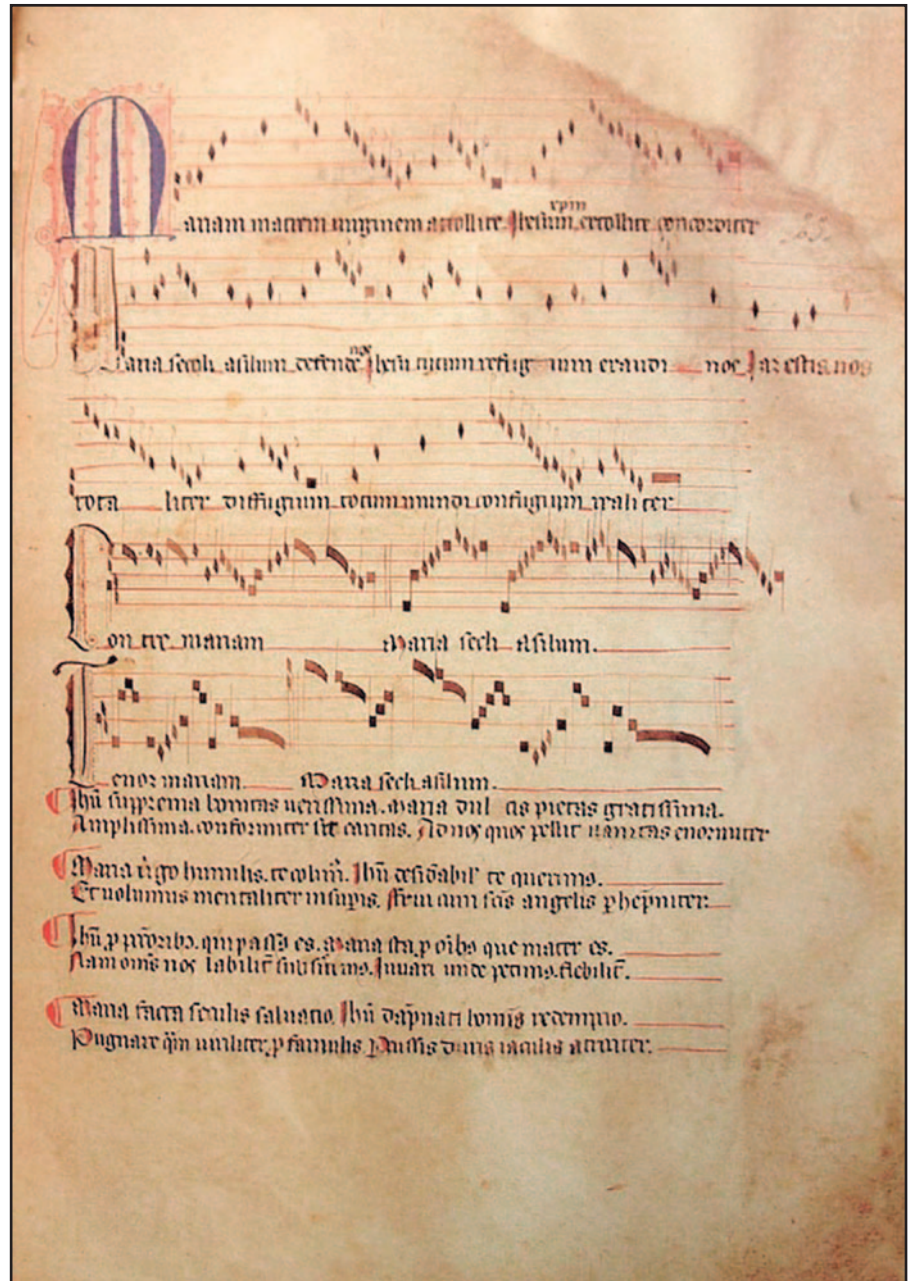 Mariam matrem uirginem attollite Jhesum xpm extollite concorditer
Maria secli asilum defende nos Jhesu tutum refugium exaudi nos Jam estis nos
totaliter diffugium totum mundi confugium realiter
Contre mariam Maria secli Asilum.
Tenor mariam Maria secli asilum.
Jhu suprema bonitas uerissima. Maria dulcis pietas gratissima.
Amplissima. conformiter sit caritas. Ad nos quos pellit uanitas enormiter
Maria uirgo humilis. te colim. Jhu desidabil te querimus.
Et uolumus mentaliter in supis. frui cum scis angelis phepniter.
Jhu p pctoribs. qui passus es. Maria sta. p oibs que mater es.
Nam omes nos labilit subsistimus. Juuari unde petimus. flebilit.
Maria facta seculis saluatio. Jhu dapnati hominis redemptio.
Pugnare qm uiriliter. p famulis Percussis duris iaculis atrociter.